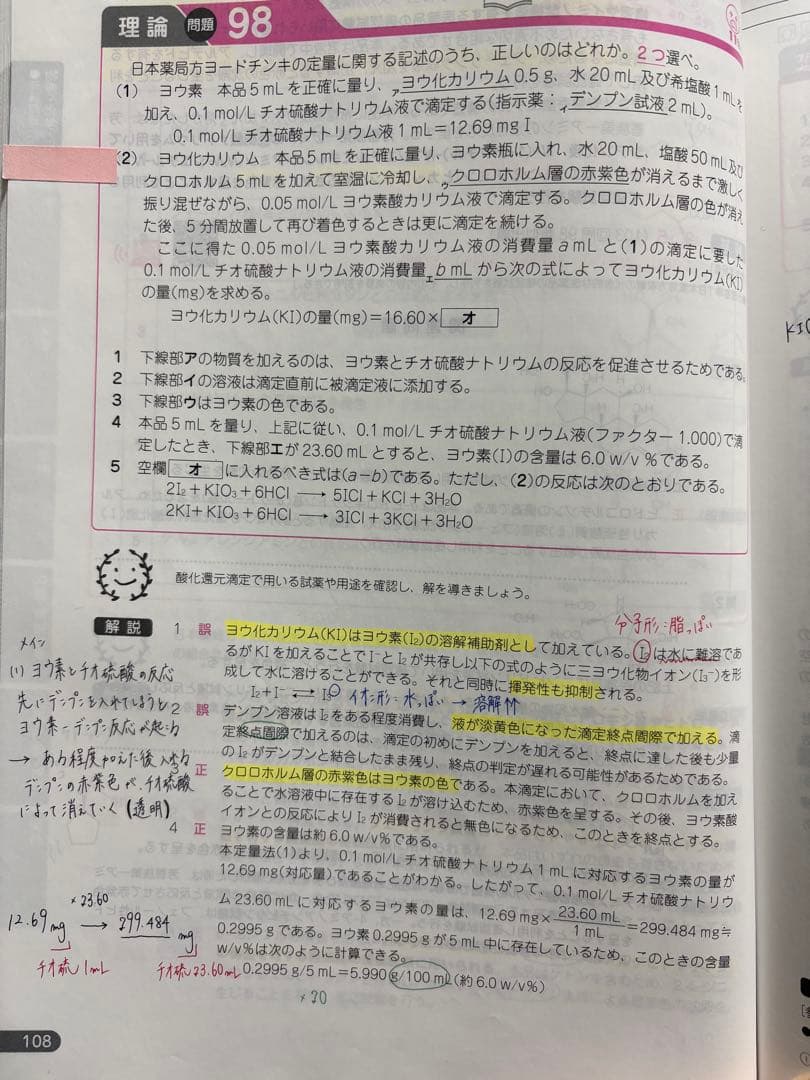 理論 問題 98
日本薬局方ヨードチンキの定量に関する記述のうち、正しいのはどれか。2つ選べ。
(1) ヨウ素 本品5mLを正確に量り、アヨウ化カリウム0.5g、水20mL及び希塩酸1mLを
加え、0.1mol/Lチオ硫酸ナトリウム液で滴定する(指示薬：イデンプン試液2mL)。
0.1mol/Lチオ硫酸ナトリウム液1mL＝12.69mg I
(2) ヨウ化カリウム 本品5mLを正確に量り、ヨウ素瓶に入れ、水20mL、塩酸50mL及び
クロロホルム5mLを加えて室温に冷却し、ウクロロホルム層の赤紫色が消えるまで激しく
振り混ぜながら、0.05mol/Lヨウ素酸カリウム液で滴定する。クロロホルム層の色が消え
た後、5分間放置して再び着色するときは更に滴定を続ける。
ここに得た0.05mol/Lヨウ素酸カリウム液の消費量amLと(1)の滴定に要した
0.1mol/Lチオ硫酸ナトリウム液の消費量エbmLから次の式によってヨウ化カリウム(KI)
の量(mg)を求める。
ヨウ化カリウム(KI)の量(mg)＝16.60× オ
1 下線部アの物質を加えるのは、ヨウ素とチオ硫酸ナトリウムの反応を促進させるためである。
2 下線部イの溶液は滴定直前に被滴定液に添加する。
3 下線部ウはヨウ素の色である。
4 本品5mLを量り、上記に従い、0.1mol/Lチオ硫酸ナトリウム液(ファクター1.000)で滴
定したとき、下線部エが23.60mLとすると、ヨウ素(I)の含量は6.0w/v%である。
5 空欄 オ に入れるべき式は(a−b)である。ただし、(2)の反応は次のとおりである。
2I₂＋KIO₃＋6HCl → 5ICl＋KCl＋3H₂O
2KI＋KIO₃＋6HCl → 3ICl＋3KCl＋3H₂O
酸化還元滴定で用いる試薬や用途を確認し、解を導きましょう。
分子形：脂っぽい
解説 1 誤 ヨウ化カリウム(KI)はヨウ素(I₂)の溶解補助剤として加えている。I₂は水に難溶であ
るがKIを加えることでI⁻とI₂が共存し以下の式のように三ヨウ化物イオン(I₃⁻)を形
成して水に溶けることができる。それと同時に揮発性も抑制される。
I₂＋I⁻ ⇄ I₃⊖ イオン形：水っぽい → 溶解性
2 誤 デンプン溶液はI₂をある程度消費し、液が淡黄色になった滴定終点間際で加える。滴
定終点間際で加えるのは、滴定の初めにデンプンを加えると、終点に達した後も少量
のI₂がデンプンと結合したまま残り、終点の判定が遅れる可能性があるためである。
3 正 クロロホルム層の赤紫色はヨウ素の色である。本滴定において、クロロホルムを加え
ることで水溶液中に存在するI₂が溶け込むため、赤紫色を呈する。その後、ヨウ素酸
イオンとの反応によりI₂が消費されると無色になるため、このときを終点とする。
4 正 ヨウ素の含量は約6.0w/v%である。
本定量法(1)より、0.1mol/Lチオ硫酸ナトリウム1mLに対応するヨウ素の量が
12.69mg(対応量)であることがわかる。したがって、0.1mol/Lチオ硫酸ナトリウ
ム23.60mLに対応するヨウ素の量は、12.69mg×23.60mL/1mL＝299.484mg≒
0.2995gである。ヨウ素0.2995gが5mL中に存在しているため、このときの含量
w/v%は次のように計算できる。
0.2995g/5mL＝5.990g/100mL(約6.0w/v%)
×20
メイン
(1) ヨウ素とチオ硫酸の反応
先にデンプンを入れてしまうと
ヨウ素-デンプン反応が起こる
→ ある程度加えた後入れる
デンプンの赤紫色がチオ硫酸
によって消えていく(透明)
×23.60
12.69mg → 299.484mg
チオ硫1mL チオ硫23.60mL
108
KIO